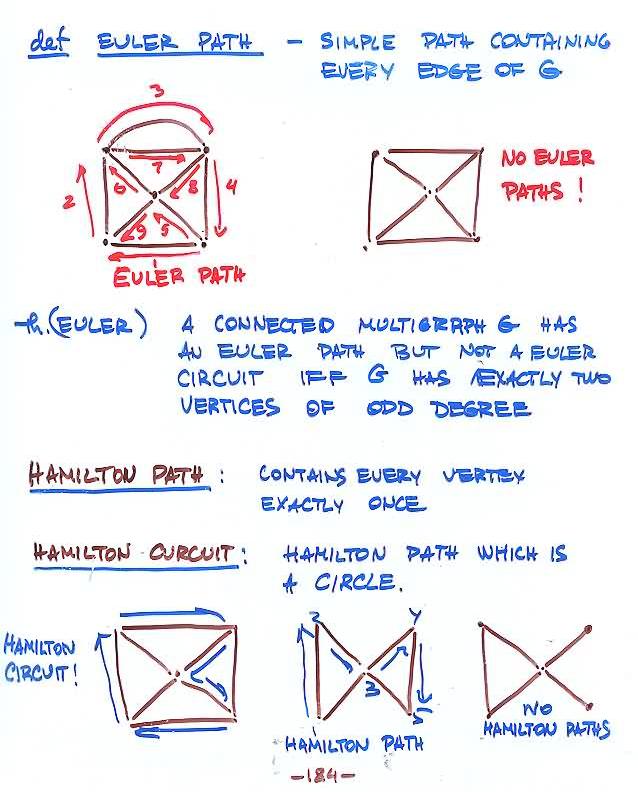 def EULER PATH - SIMPLE PATH CONTAINING
EVERY EDGE OF G
3
2
6
7
8
4
9
5
1
EULER PATH
NO EULER
PATHS!
th. (EULER) A CONNECTED MULTIGRAPH G HAS
AN EULER PATH BUT NOT A EULER
CIRCUIT IFF G HAS EXACTLY TWO
VERTICES OF ODD DEGREE
HAMILTON PATH: CONTAINS EVERY VERTEX
EXACTLY ONCE
HAMILTON CURCUIT: HAMILTON PATH WHICH IS
A CIRCLE.
HAMILTON
CIRCUIT!
2
4
3
5
HAMILTON PATH
NO
HAMILTON PATHS
-184-